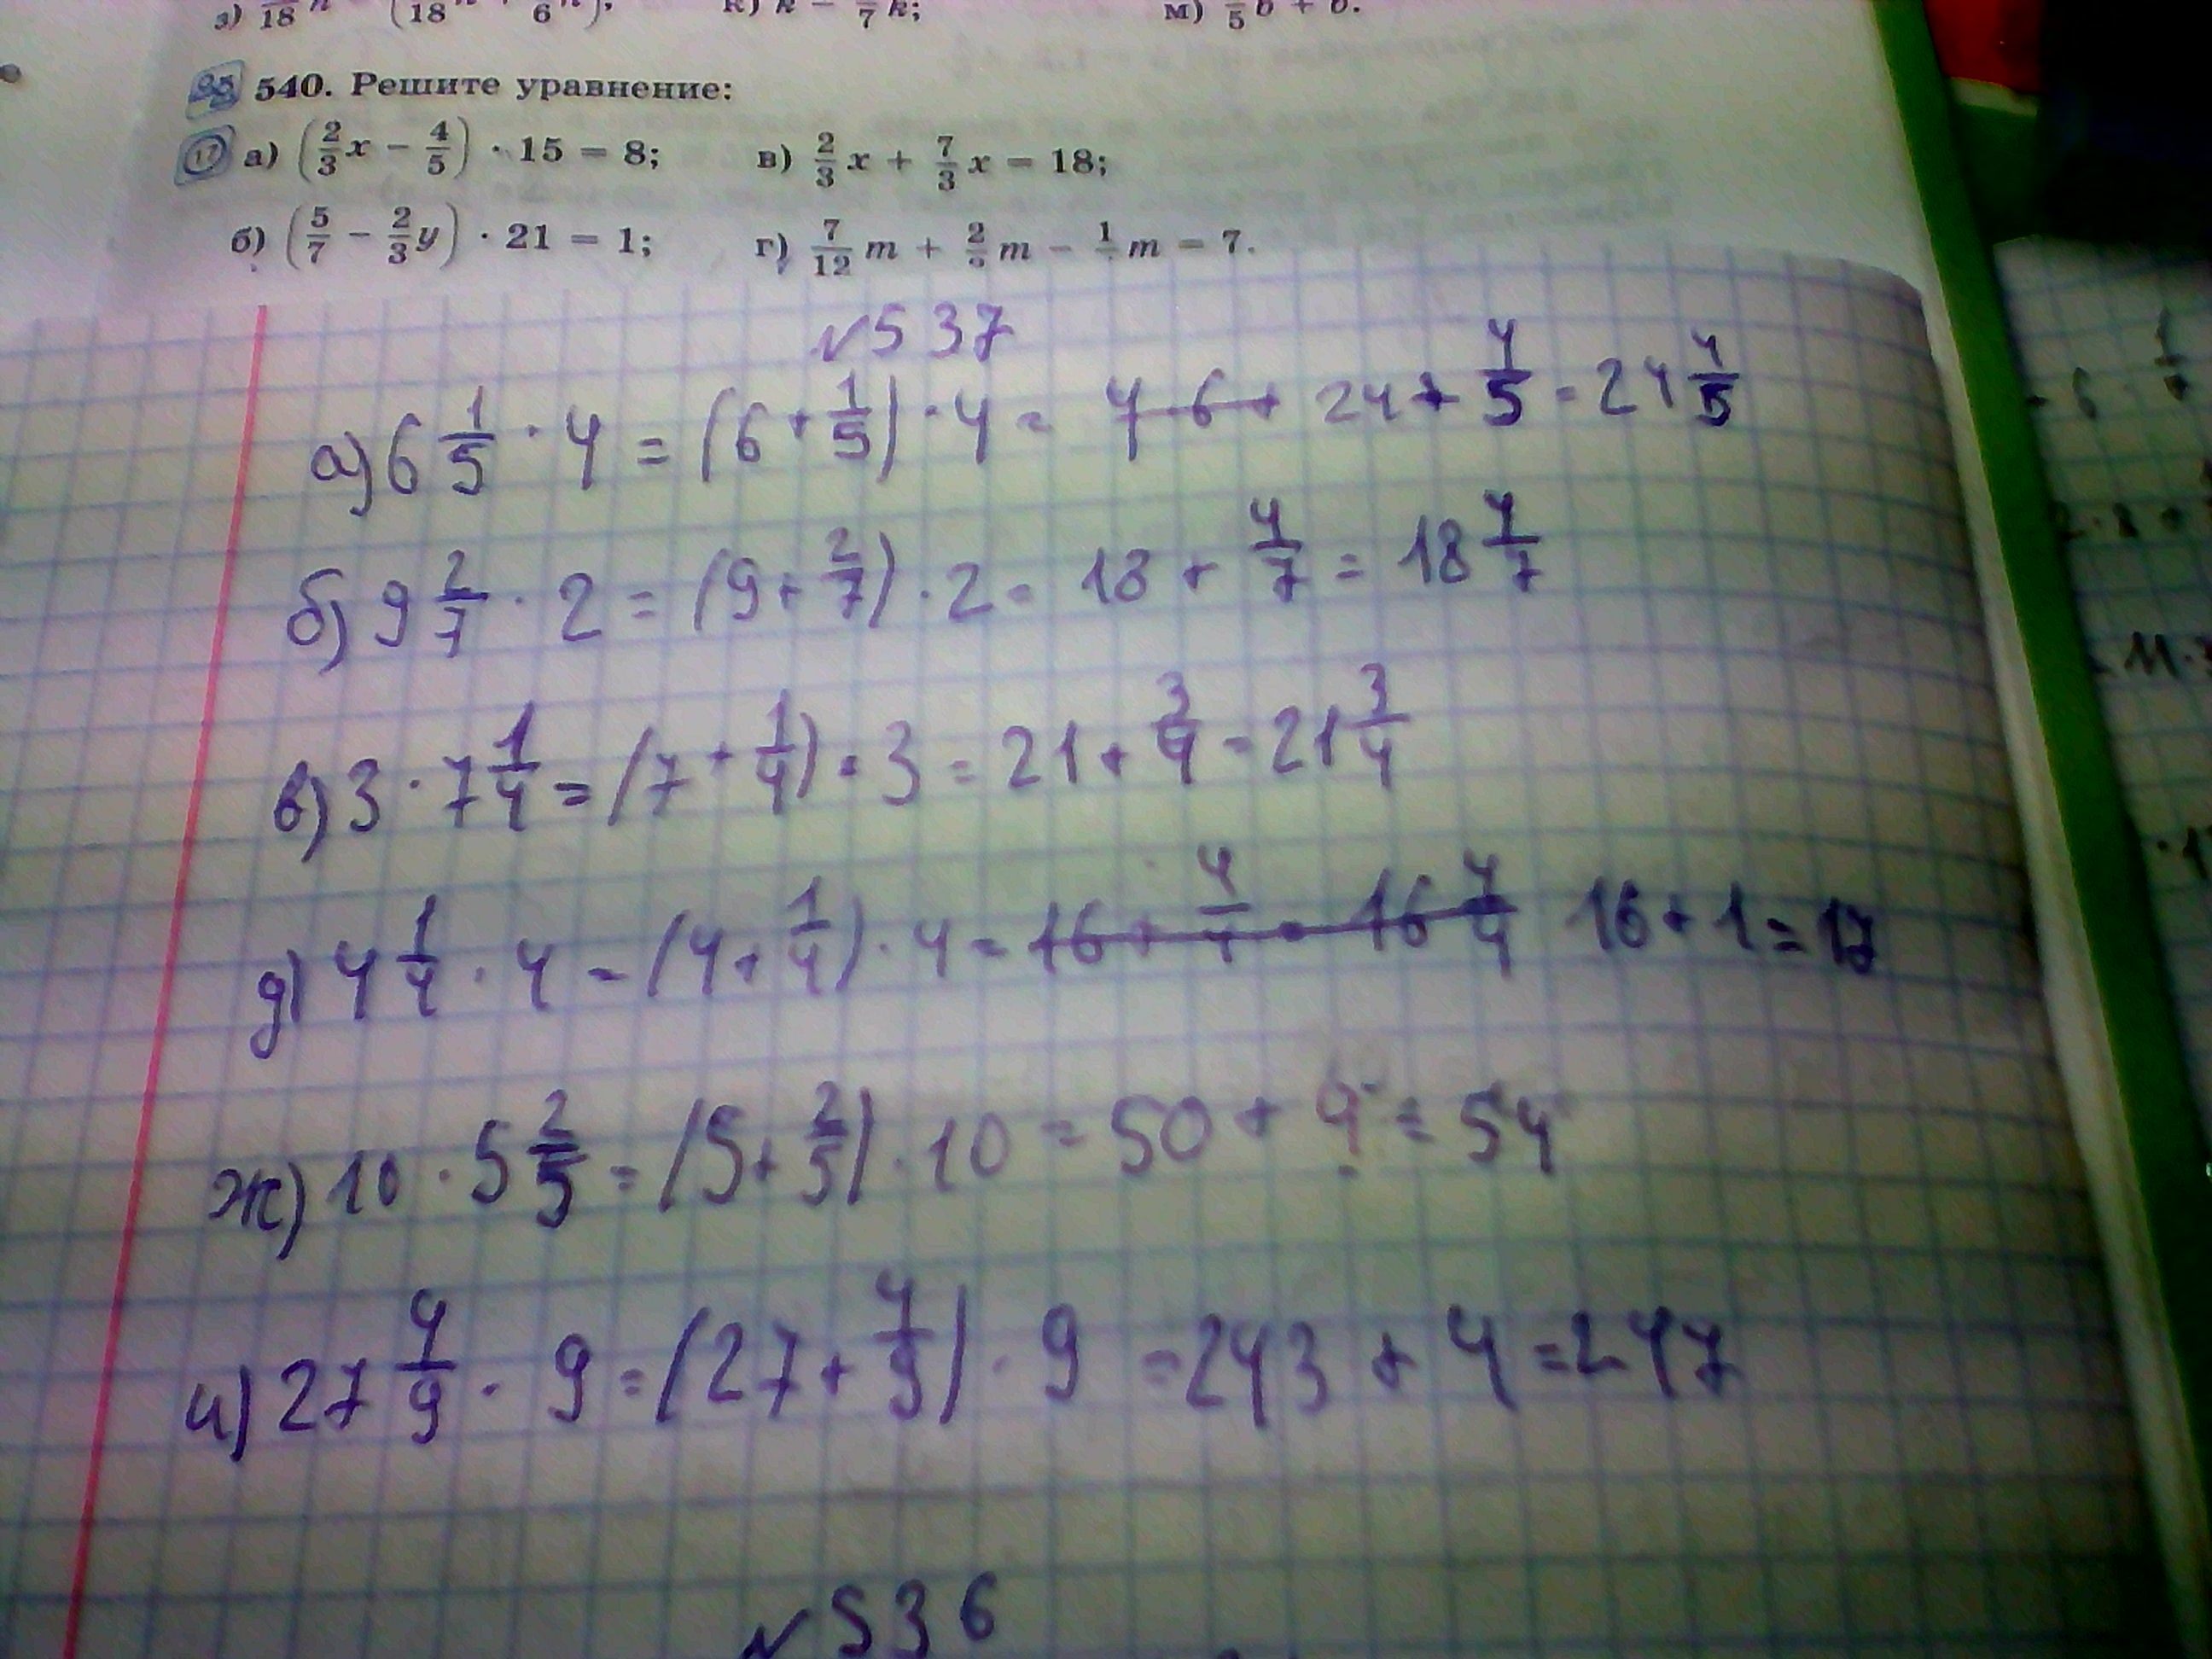 з) 18
540. Решите уравнение:
а) (2/3 x − 4/5) · 15 = 8; в) 2/3 x + 7/3 x = 18;
б) (5/7 − 2/3 y) · 21 = 1; г) 7/12 m + 2 m − 1 m = 7.
№537
а) 6 1/5 · 4 = (6 + 1/5) · 4 = 4·6+ 24 + 4/5 = 24 4/5
б) 9 2/7 · 2 = (9 + 2/7) · 2 = 18 + 4/7 = 18 4/7
в) 3 · 7 1/4 = (7 + 1/4) · 3 = 21 + 3/4 = 21 3/4
д) 4 1/4 · 4 = (4 + 1/4) · 4 = 16 + 4/4 = 16 4/4 16 + 1 = 17
ж) 10 · 5 2/5 = (5 + 2/5) · 10 = 50 + 4 = 54
и) 27 4/9 · 9 = (27 + 4/9) · 9 = 243 + 4 = 247
№536